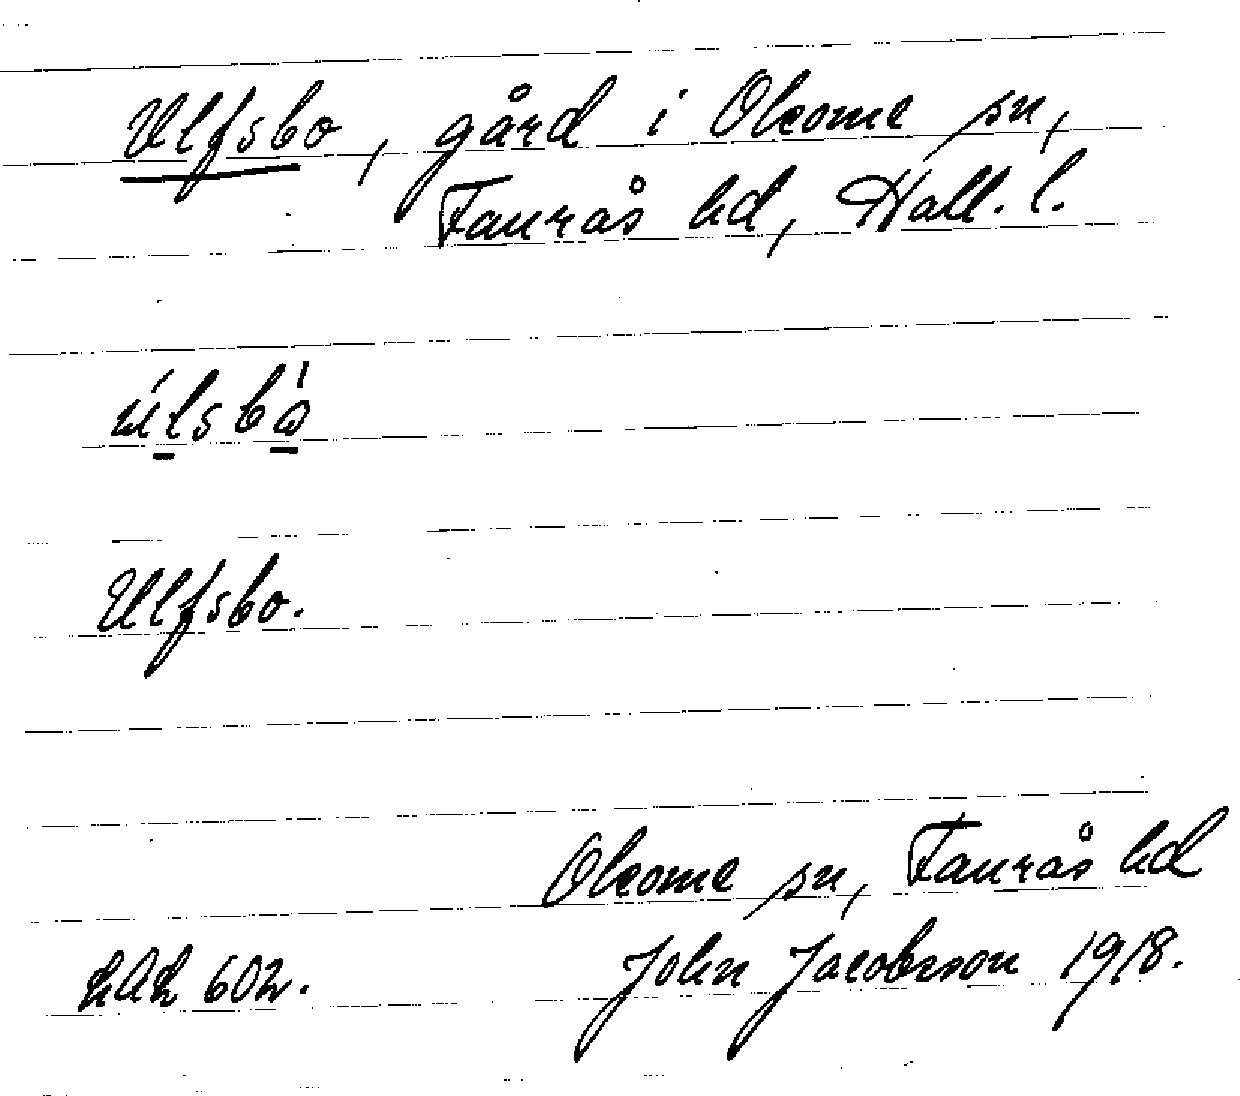 Ulfsbo, gård i Okome sn,
Faurås hd, Hall. l.
úlsbò
Ulfsbo.
Okome sn, Faurås hd
LAL 602. John Jacobsson 1918.